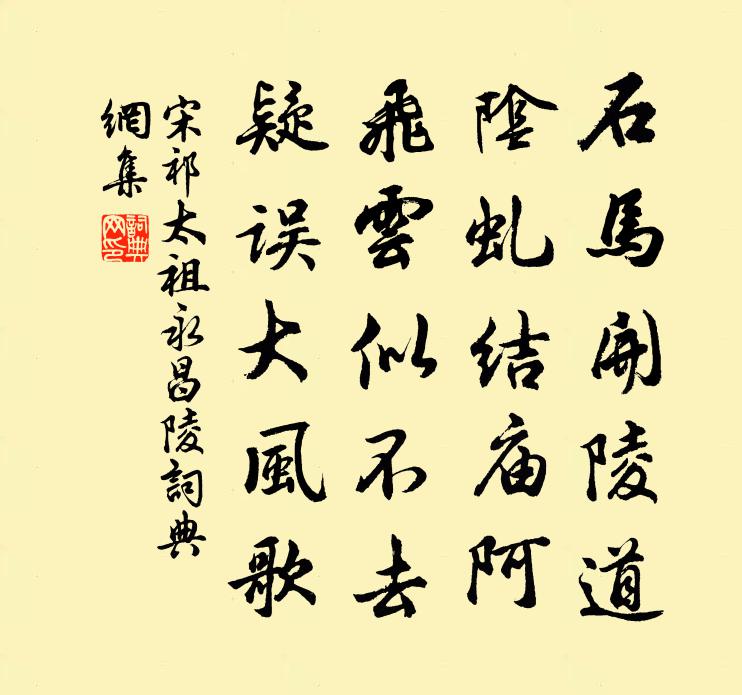 石馬開陵道
陰虬結庙阿
飛雲似不去
疑误大風歌
宋祁太祖永昌陵詞典
網集
詞典
网印